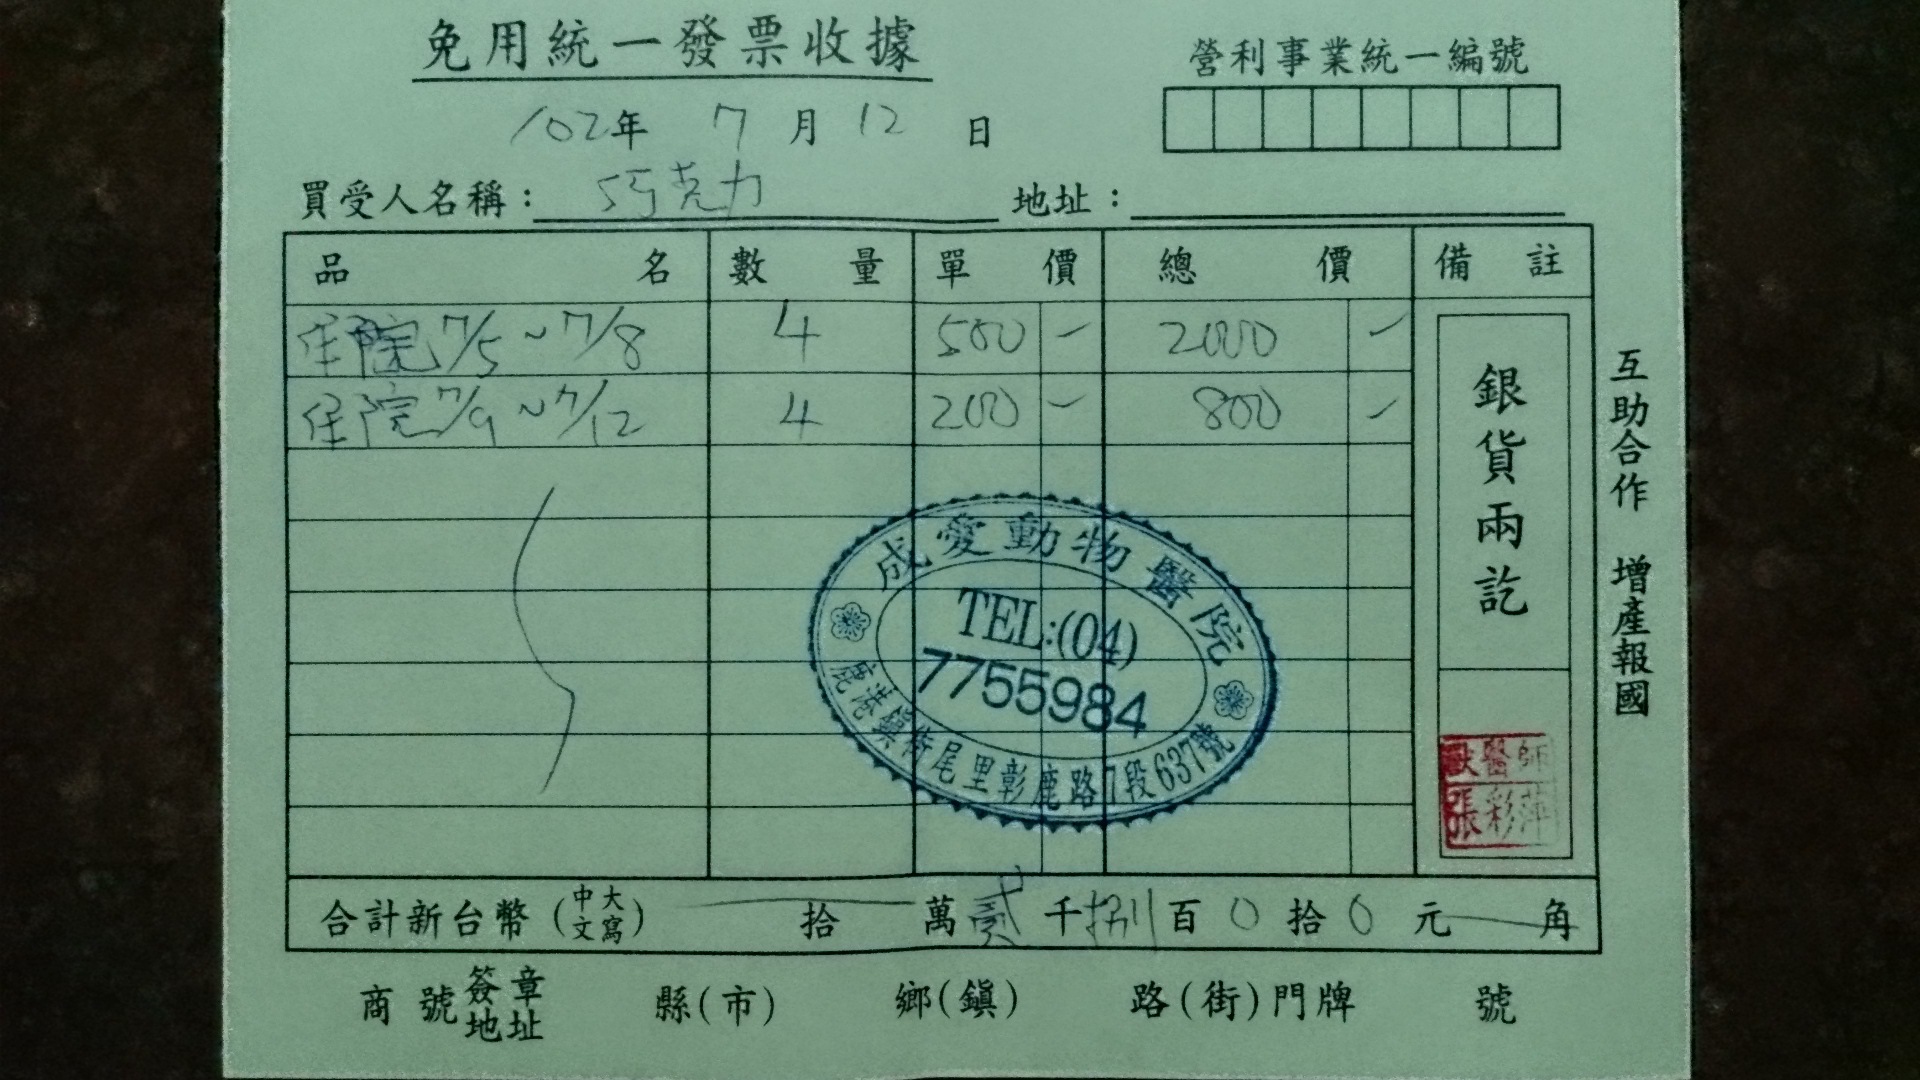 免用統一發票收據
營利事業統一編號
102年 7月 12日
買受人名稱：巧克力 地址：
品名 數量 單價 總價 備註
住院7/5~7/8 4 500 - 2000 -
住院7/9~7/12 4 200 - 800 -
銀貨兩訖
互助合作 增產報國
成愛動物醫院
TEL:(04)
7755984
鹿港鎮街尾里彰鹿路7段637號
獸醫師
張彩萍
合計新台幣(中文大寫) 拾 萬 貳 千 捌 百 0 拾 0 元 角
商號簽章地址 縣(市) 鄉(鎮) 路(街)門牌 號